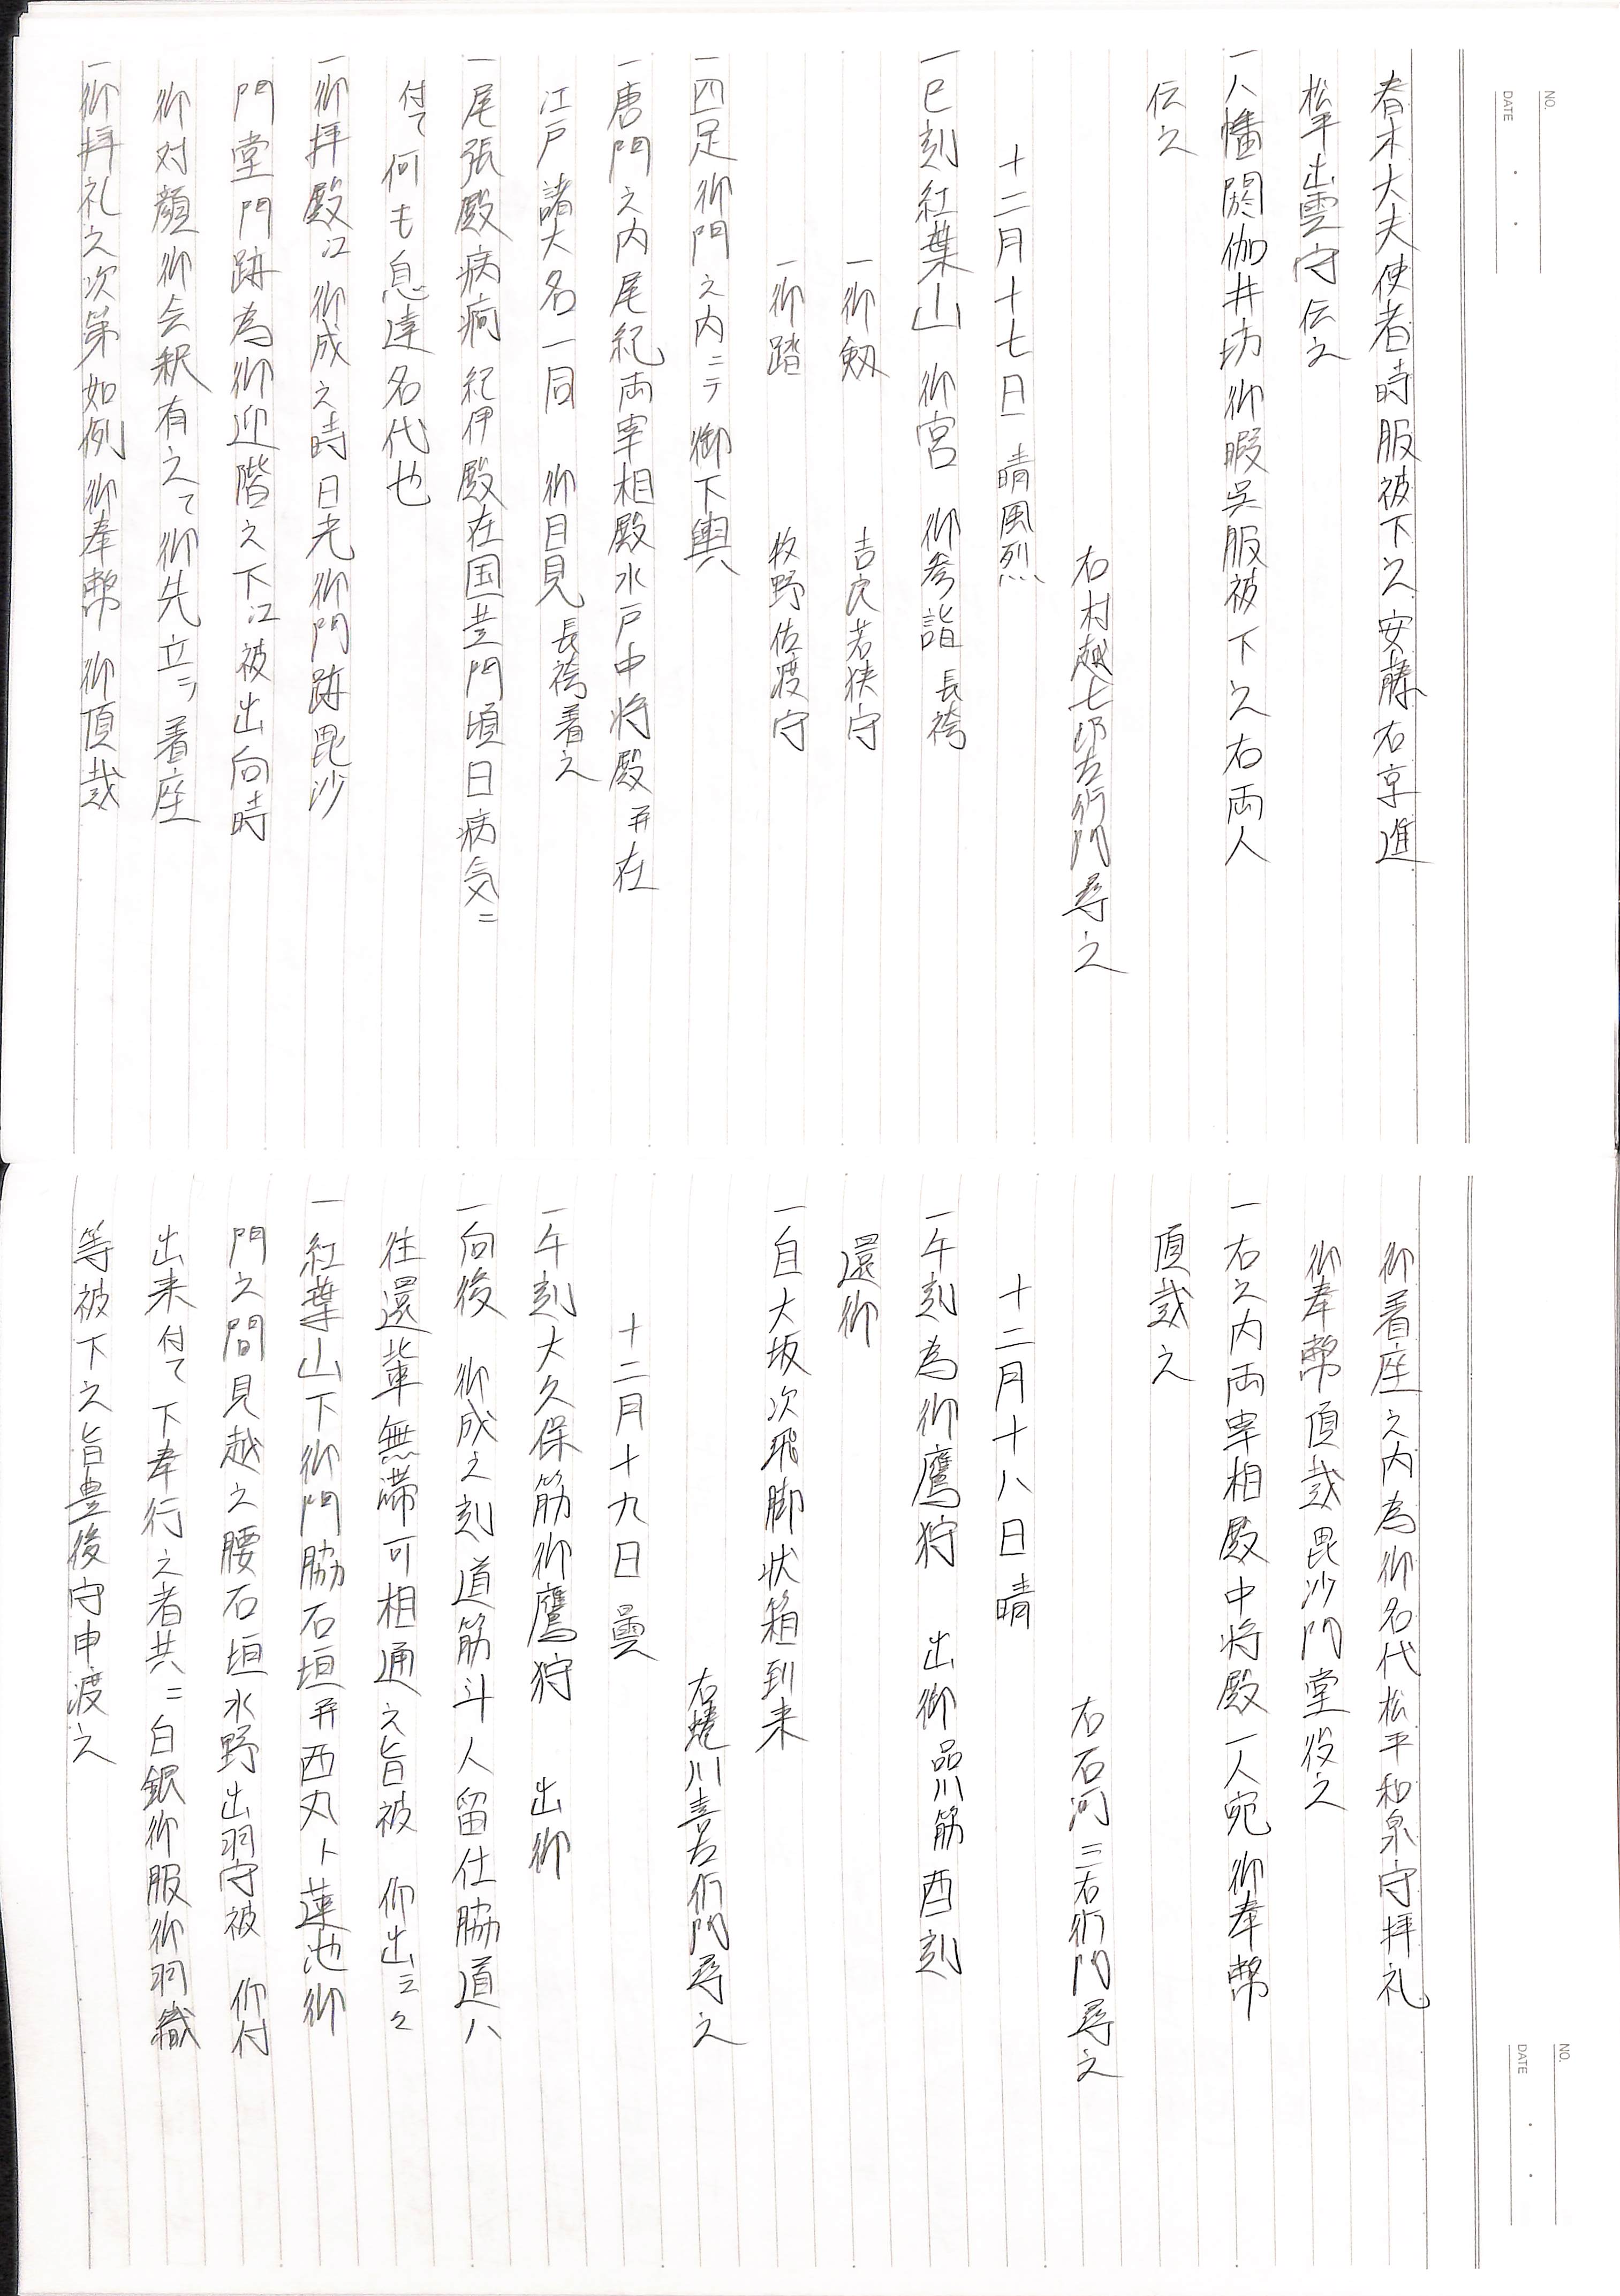 NO.
DATE
春木大夫使者時服被下之安藤右京進
松平出雲守伝之
一八幡閼伽井坊御暇呉服被下之右両人
伝之
右村越七郎左衛門尋之
十二月十七日 晴風烈
一巳刻紅葉山 御宮 御参詣 長袴
一御劔 吉良若狭守
一御踏 牧野佐渡守
一四足御門之内ニテ 御下輿
一唐門之内尾紀両宰相殿水戸中将殿并在
江戸諸大名一同 御目見 長袴着之
一尾張殿病痾紀伊殿在国黄門頃日病気ニ
付て何も息達名代也
一御拝殿江御成之時日光御門跡毘沙
門堂門跡為御迎階之下江被出向時
御対顔御会釈有之て御先立ニテ着座
一御拝礼之次第如例御奉幣 御頂戴
NO.
DATE
御着座之内為御名代松平和泉守拝礼
御奉幣頂戴毘沙門堂役之
一右之内両宰相殿中将殿一人宛御奉幣
頂戴之
右石河三右衛門尋之
十二月十八日 晴
一午刻為御鷹狩 出御 品川筋 酉刻
還御
一自大坂次飛脚状箱到来
右蜷川喜右衛門尋之
十二月十九日 曇
一午刻大久保筋御鷹狩 出御
一向後 御成之刻道筋斗人留仕脇道ハ
往還輩無滞可相通之旨被 仰出云々
一紅葉山下御門脇石垣并西丸ト蓮池御
門之間見越之腰石垣水野出羽守被 仰付
出来付て下奉行之者共ニ白銀御服御羽織
等被下之旨豊後守申渡之